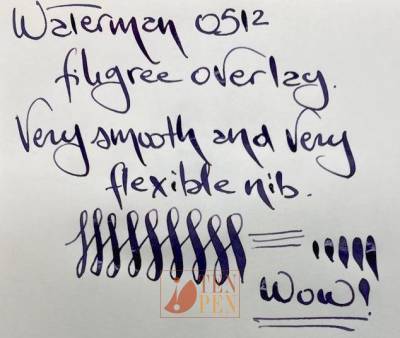 Waterman 0512
filigree overlay.
Very smooth and very
flexible nib.
TEN
PEN
Wow!